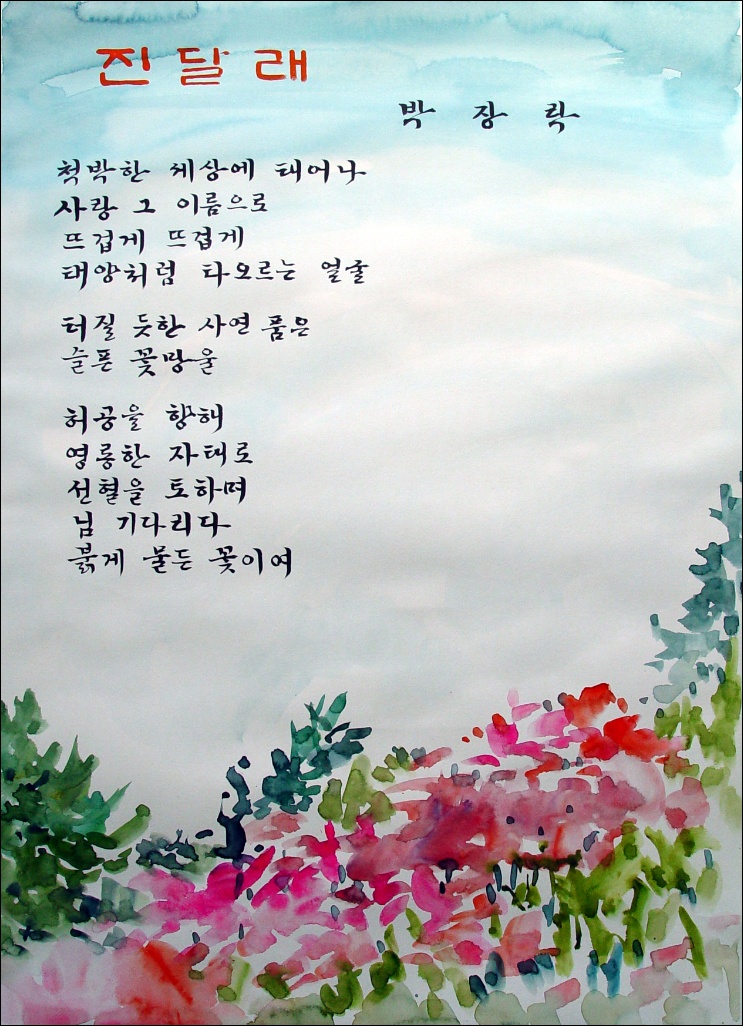 진달래
박 장 락
척박한 세상에 태어나
사랑 그 이름으로
뜨겁게 뜨겁게
태양처럼 타오르는 얼굴
터질 듯한 사연 품은
슬픈 꽃망울
허공을 향해
영롱한 자태로
선혈을 토하며
님 기다리다
붉게 물든 꽃이여